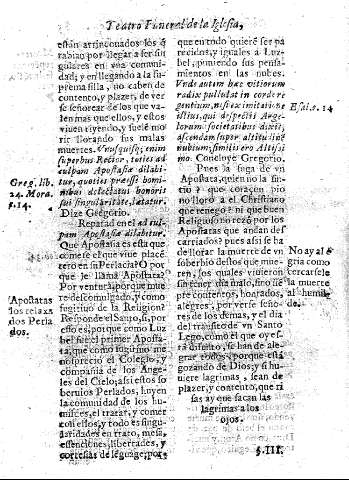 Teatro Funeral de la Iglesia,
están arrinconados los q̃
rabian por llegar a ser sin
gulares en vna comuni-
dad; y en llegando a la su-
prema silla, no caben de
contento, y plazer, de ver
se señorear de los que va-
len mas que ellos, y estos
viuen riyendo, y suelē mo
rir llorando sus malas
muertes. Vnusquisq; enim
superbus Rector, toties ad
culpam Apostasiæ dilabi
tur, quoties præesse homi
nibus delectatus honoris
sui singularitate, lætatur.
Dize Gregorio.
Greg. lib.
24. Mora.
Reparad en el ad cul-
pam Apostasiæ dilabitur.
Que Apostasia es esta que
comete el que viue place
tero en su Perlacia? O por
que le llama Apostata?
Por ventura, porque mue
re descomulgado, y como
fugitiuo de la Religion?
Responde el Santo, si, por
esso es, porque como Luz
bel fue el primer Aposta-
ta, que como sugeto mo
no forecio el Colegio, y
compañia de los Ange-
les del Cielo; assi estos so
beruios Perlados, huyen
la comunidad de los hu-
mildes, el trazar, y comer
con ellos, y todo es singu-
laridades en trato, mesa,
essenciones, libertades, y
cortesias de lēguage, por-
Apostatas
los relaxa
dos Perla
dos.
que en todo quierē ser pa
recidos, y iguales a Luz-
bel, poniendo sus pensa-
mientos en las nubes.
Vnde autem hæc vitiorum
radix pullulat in corde re
gentium, nisi ex imitatione
illius, qui despectis Ange-
lorum societatibus dixit,
ascendam super altitudinē
nubium; similis ero Altissi
mo. Concluye Gregorio.
Esai. c. 14
Pues la fuga de vn
Apostata, quien no la sin-
tio? que coraçon pio
no lloro a el Christiano
que renego? ni que buen
Religioso no rezó por los
Apostatas que andan des
carriados? pues assi se ha
de llorar la muerte de vn
soberbio de los que mue-
ren, los quales viuieron
sin tener dia malo, sino siē
pre contentos, honrados,
alegres; por verse seño-
res de los demas, y el dia
del transito de vn Santo
Lego, como el que oy es-
rà difunto, se han de ale-
grar todos, porque està
gozando de Dios; y si hu-
uiere lagrimas, sean de
plazer, y contento, que ri
sas ay que sacan las
lagrimas a los
ojos.
No ay alē
gria como
cercarsele
la muerte
al humil-
de.
§.III.